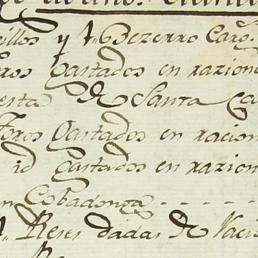 illos y 1. Bezerro Caro.
ros Gastados en razion
esta de Santa Ca
Toros Gastados en racion
id Gastados en razion
en Cobadonga
Reses dadas de Vaci